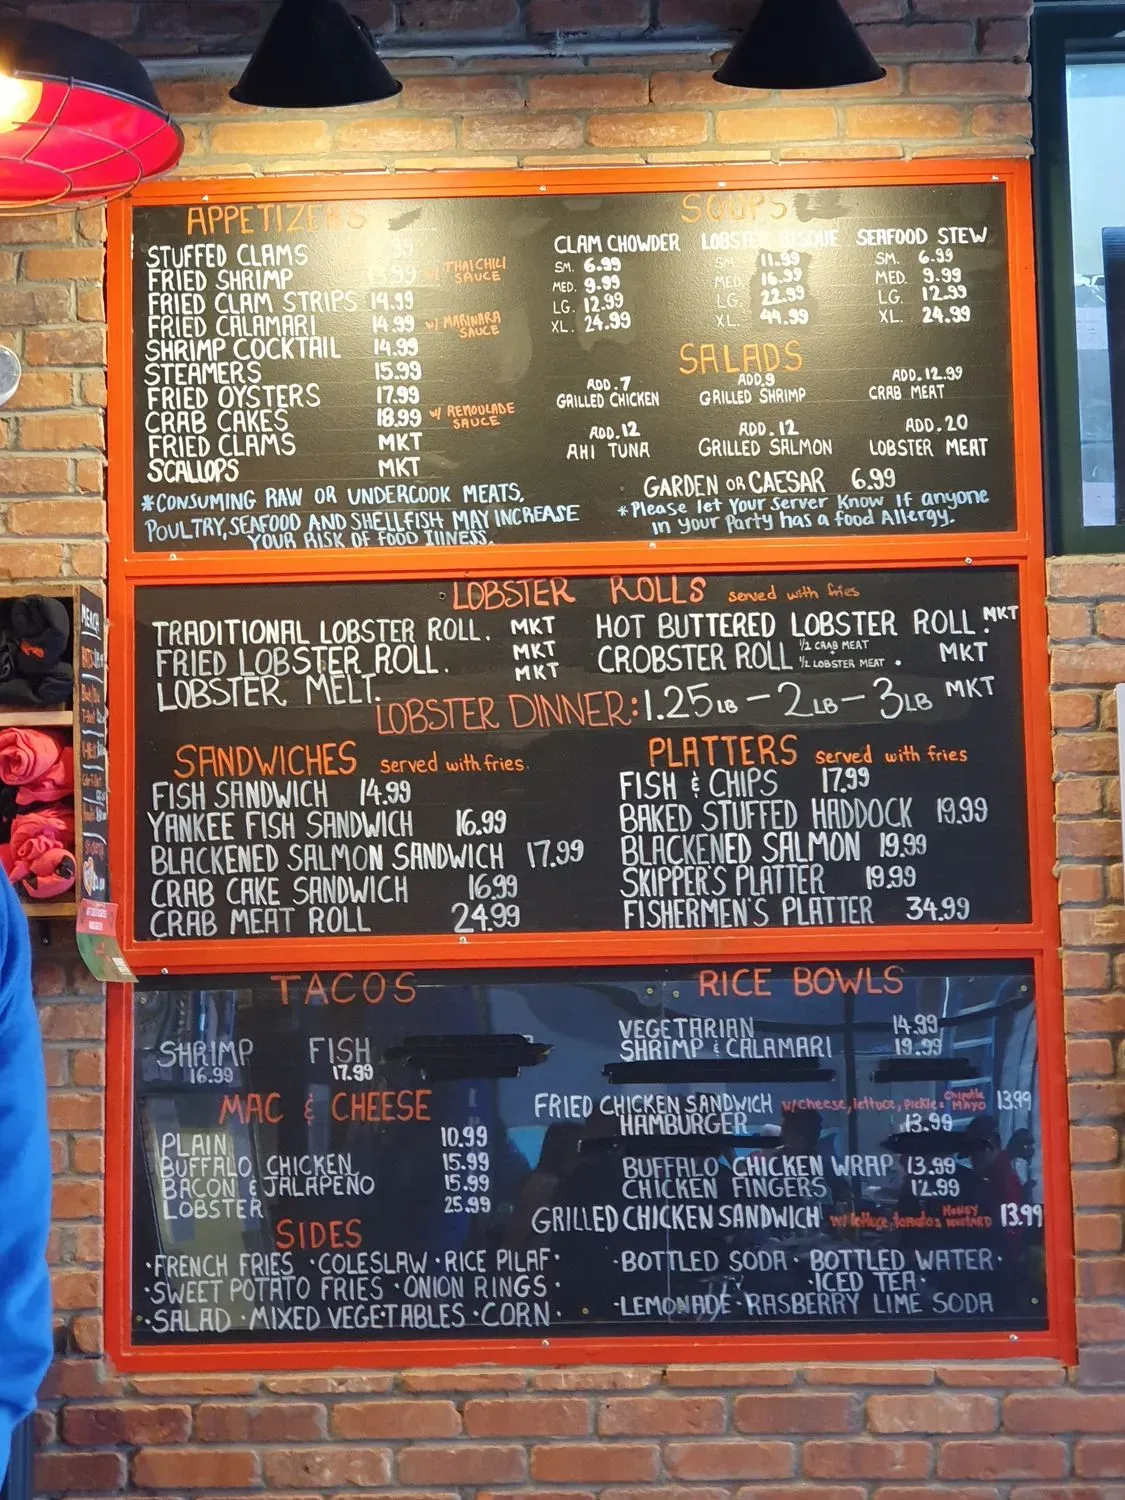 APPETIZERS
STUFFED CLAMS
FRIED SHRIMP 13.99 w/ THAI CHILI SAUCE
FRIED CLAM STRIPS 14.99
FRIED CALAMARI 14.99 w/ MARINARA SAUCE
SHRIMP COCKTAIL 14.99
STEAMERS 15.99
FRIED OYSTERS 17.99
CRAB CAKES 18.99 w/ REMOULADE SAUCE
FRIED CLAMS MKT
SCALLOPS MKT
*CONSUMING RAW OR UNDERCOOK MEATS,
POULTRY, SEAFOOD AND SHELLFISH MAY INCREASE
YOUR RISK OF FOOD ILLNESS.
SOUPS
CLAM CHOWDER LOBSTER BISQUE SEAFOOD STEW
SM. 6.99 SM. 11.99 SM. 6.99
MED. 9.99 MED. 16.99 MED. 9.99
LG. 12.99 LG. 22.99 LG. 12.99
XL. 24.99 XL. 44.99 XL. 24.99
SALADS
ADD. 7 ADD. 9 ADD. 12.99
GRILLED CHICKEN GRILLED SHRIMP CRAB MEAT
ADD. 12 ADD. 12 ADD. 20
AHI TUNA GRILLED SALMON LOBSTER MEAT
GARDEN OR CAESAR 6.99
*Please let Your Server Know if anyone
in your Party has a food Allergy.
LOBSTER ROLLS served with fries
TRADITIONAL LOBSTER ROLL. MKT
FRIED LOBSTER ROLL. MKT
LOBSTER MELT. MKT
HOT BUTTERED LOBSTER ROLL. MKT
CROBSTER ROLL 1/2 CRAB MEAT 1/2 LOBSTER MEAT . MKT
LOBSTER DINNER: 1.25 LB - 2 LB - 3 LB MKT
SANDWICHES served with fries.
FISH SANDWICH 14.99
YANKEE FISH SANDWICH 16.99
BLACKENED SALMON SANDWICH 17.99
CRAB CAKE SANDWICH 16.99
CRAB MEAT ROLL 24.99
PLATTERS served with fries
FISH & CHIPS 17.99
BAKED STUFFED HADDOCK 19.99
BLACKENED SALMON 19.99
SKIPPER'S PLATTER 19.99
FISHERMEN'S PLATTER 34.99
TACOS
SHRIMP FISH
16.99 17.99
MAC & CHEESE
PLAIN 10.99
BUFFALO CHICKEN 15.99
BACON & JALAPEÑO 15.99
LOBSTER 25.99
SIDES
·FRENCH FRIES ·COLESLAW ·RICE PILAF·
·SWEET POTATO FRIES ·ONION RINGS·
·SALAD ·MIXED VEGETABLES ·CORN·
RICE BOWLS
VEGETARIAN 14.99
SHRIMP & CALAMARI 19.99
FRIED CHICKEN SANDWICH w/cheese, lettuce, pickle & Chipotle MAYO 13.99
HAMBURGER 13.99
BUFFALO CHICKEN WRAP 13.99
CHICKEN FINGERS 12.99
GRILLED CHICKEN SANDWICH w/ lettuce, tomato & HONEY MUSTARD 13.99
·BOTTLED SODA· BOTTLED WATER·
·ICED TEA·
·LEMONADE·RASBERRY LIME SODA